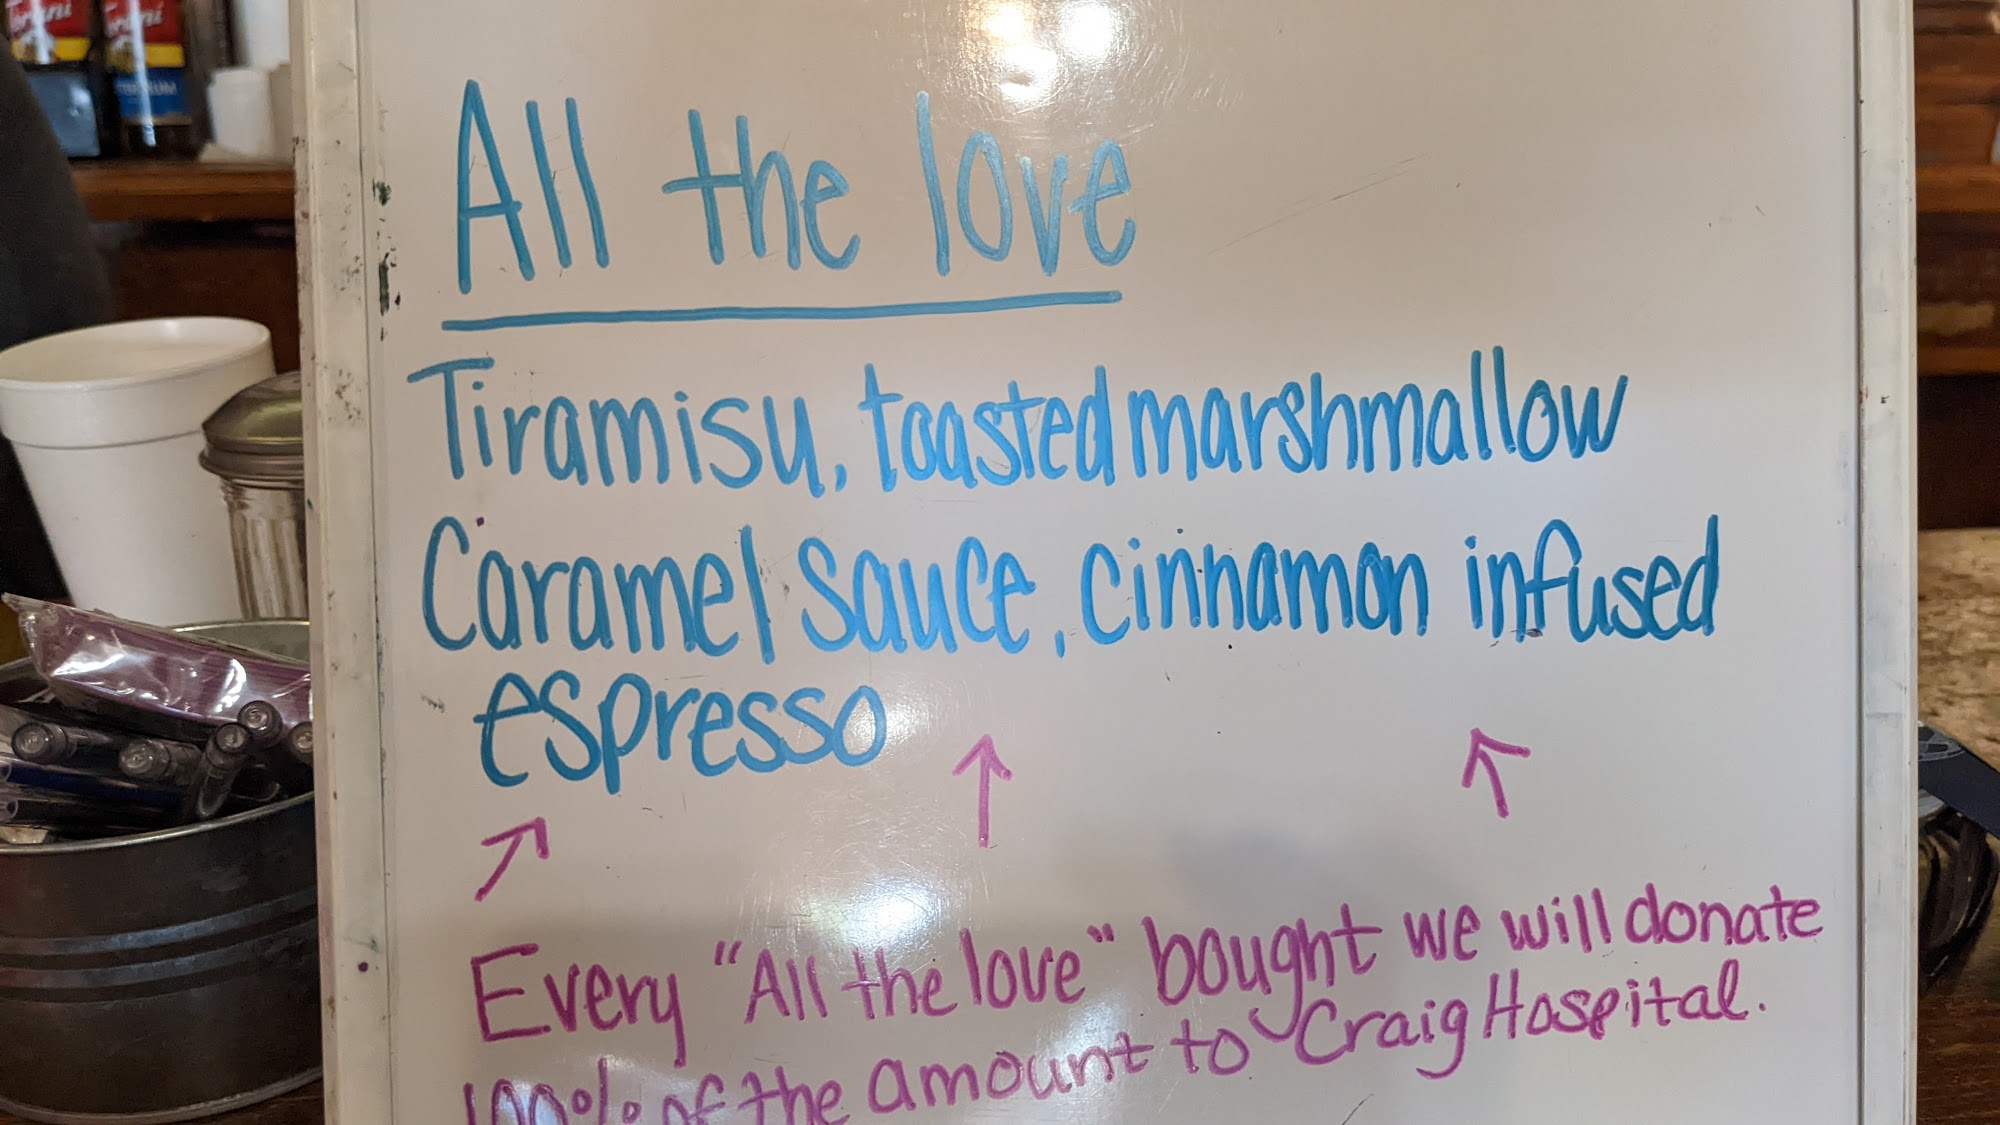 Torani
Torani
All the love
Tiramisu, toasted marshmallow
Caramel sauce, cinnamon infused
espresso
Every "All the love" bought we will donate
100% of the amount to Craig Hospital.